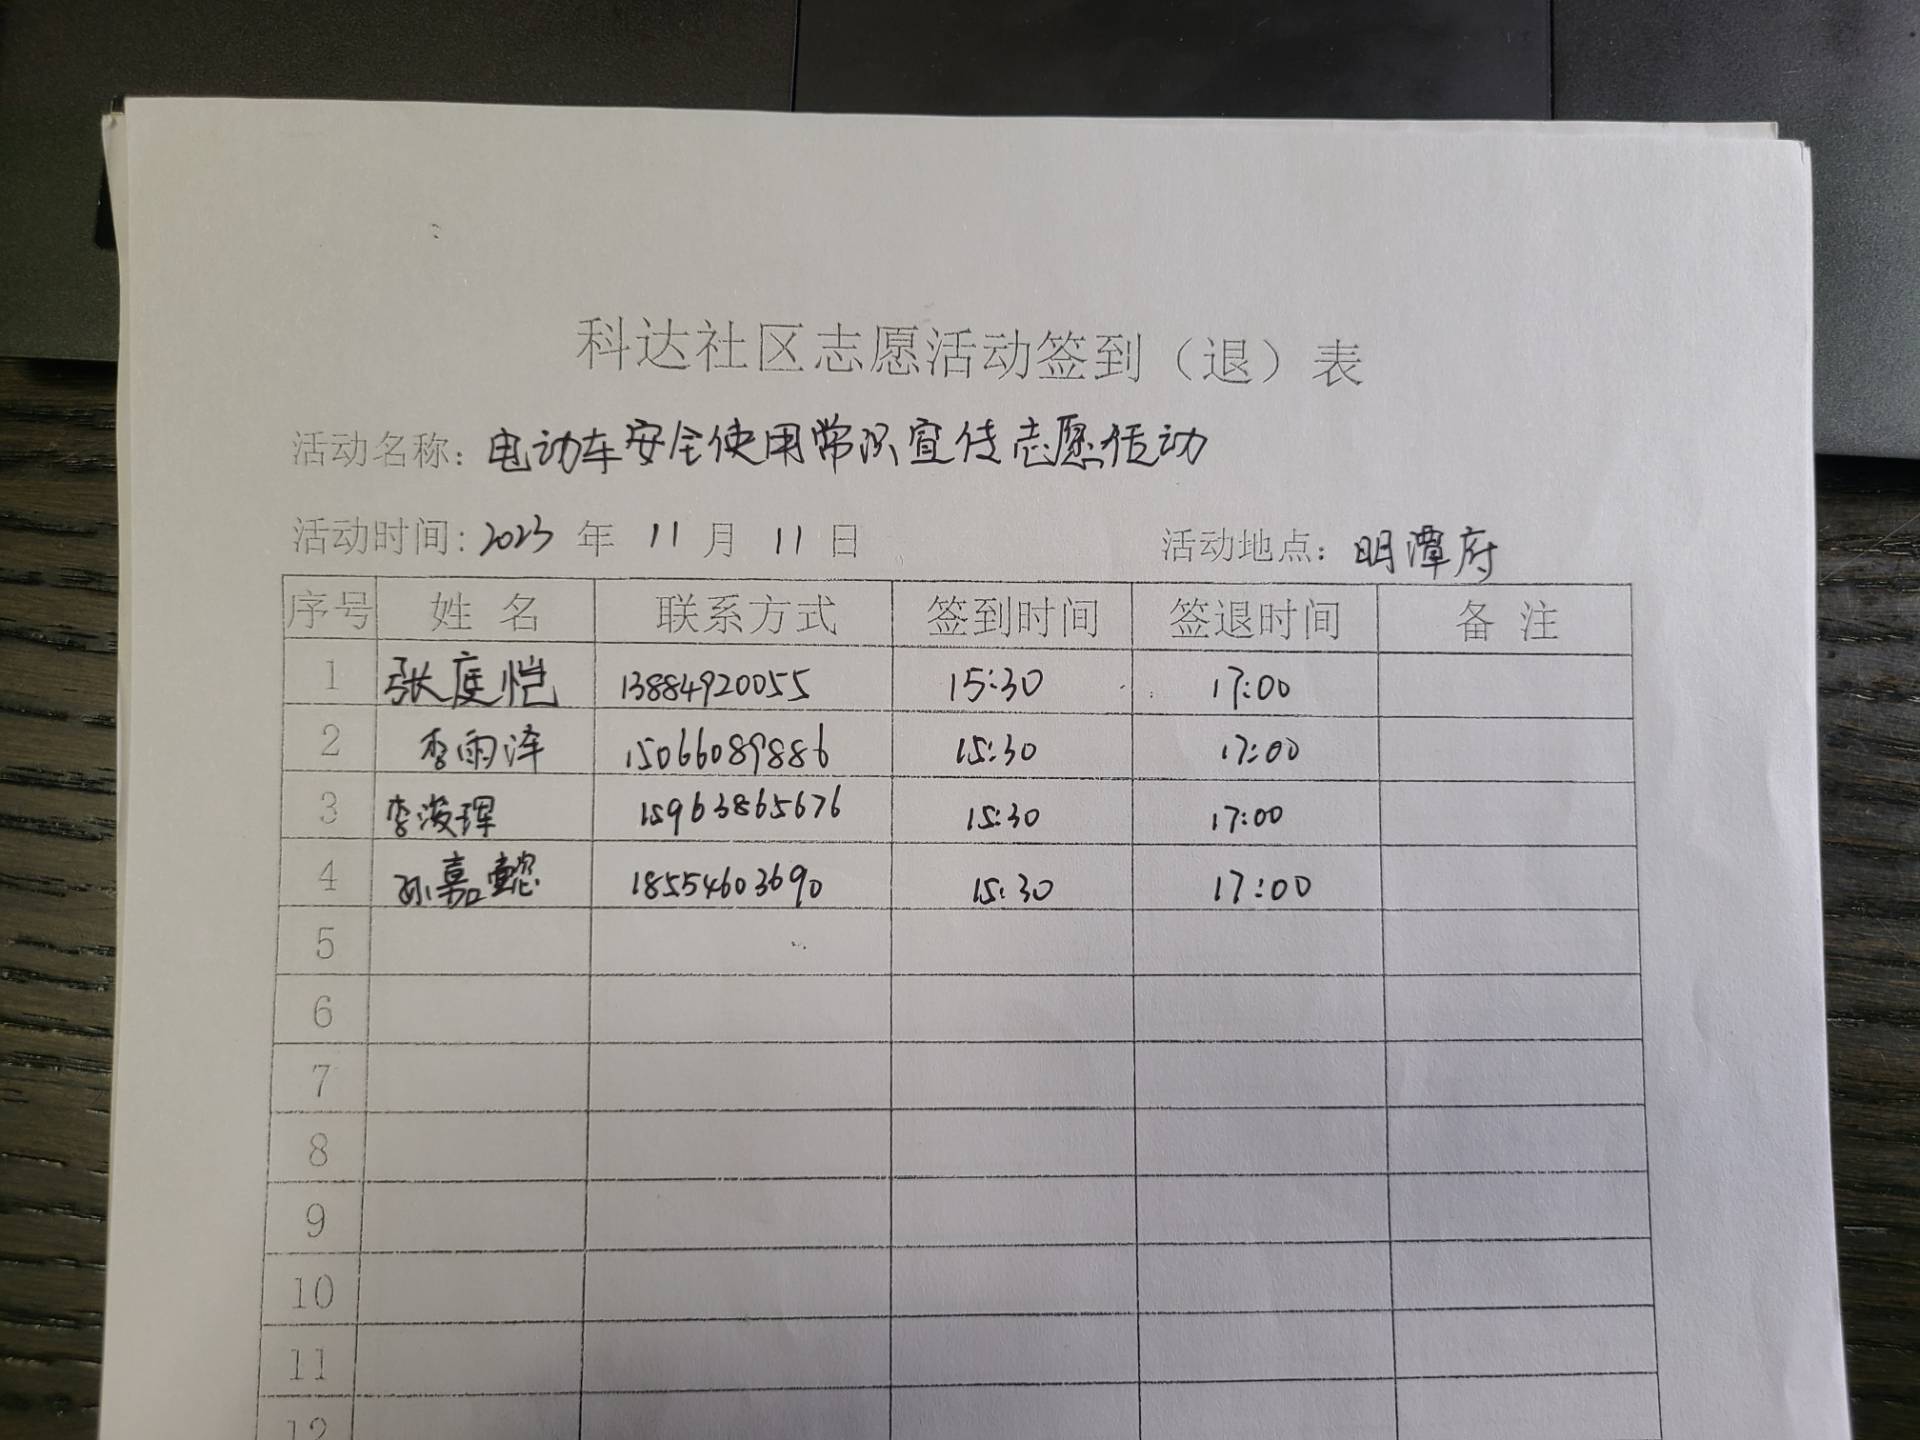 科达社区志愿活动签到（退）表
活动名称：电动车安全使用常识宣传志愿活动
活动时间：2023 年 11 月 11 日 活动地点：明潭府
序号 姓 名 联系方式 签到时间 签退时间 备 注
1 张庭恺 13884920055 15:30 17:00
2 李雨泽 15066089886 15:30 17:00
3 李浚珲 15963865676 15:30 17:00
4 孙嘉懿 18554603690 15:30 17:00
5
6
7
8
9
10
11
12